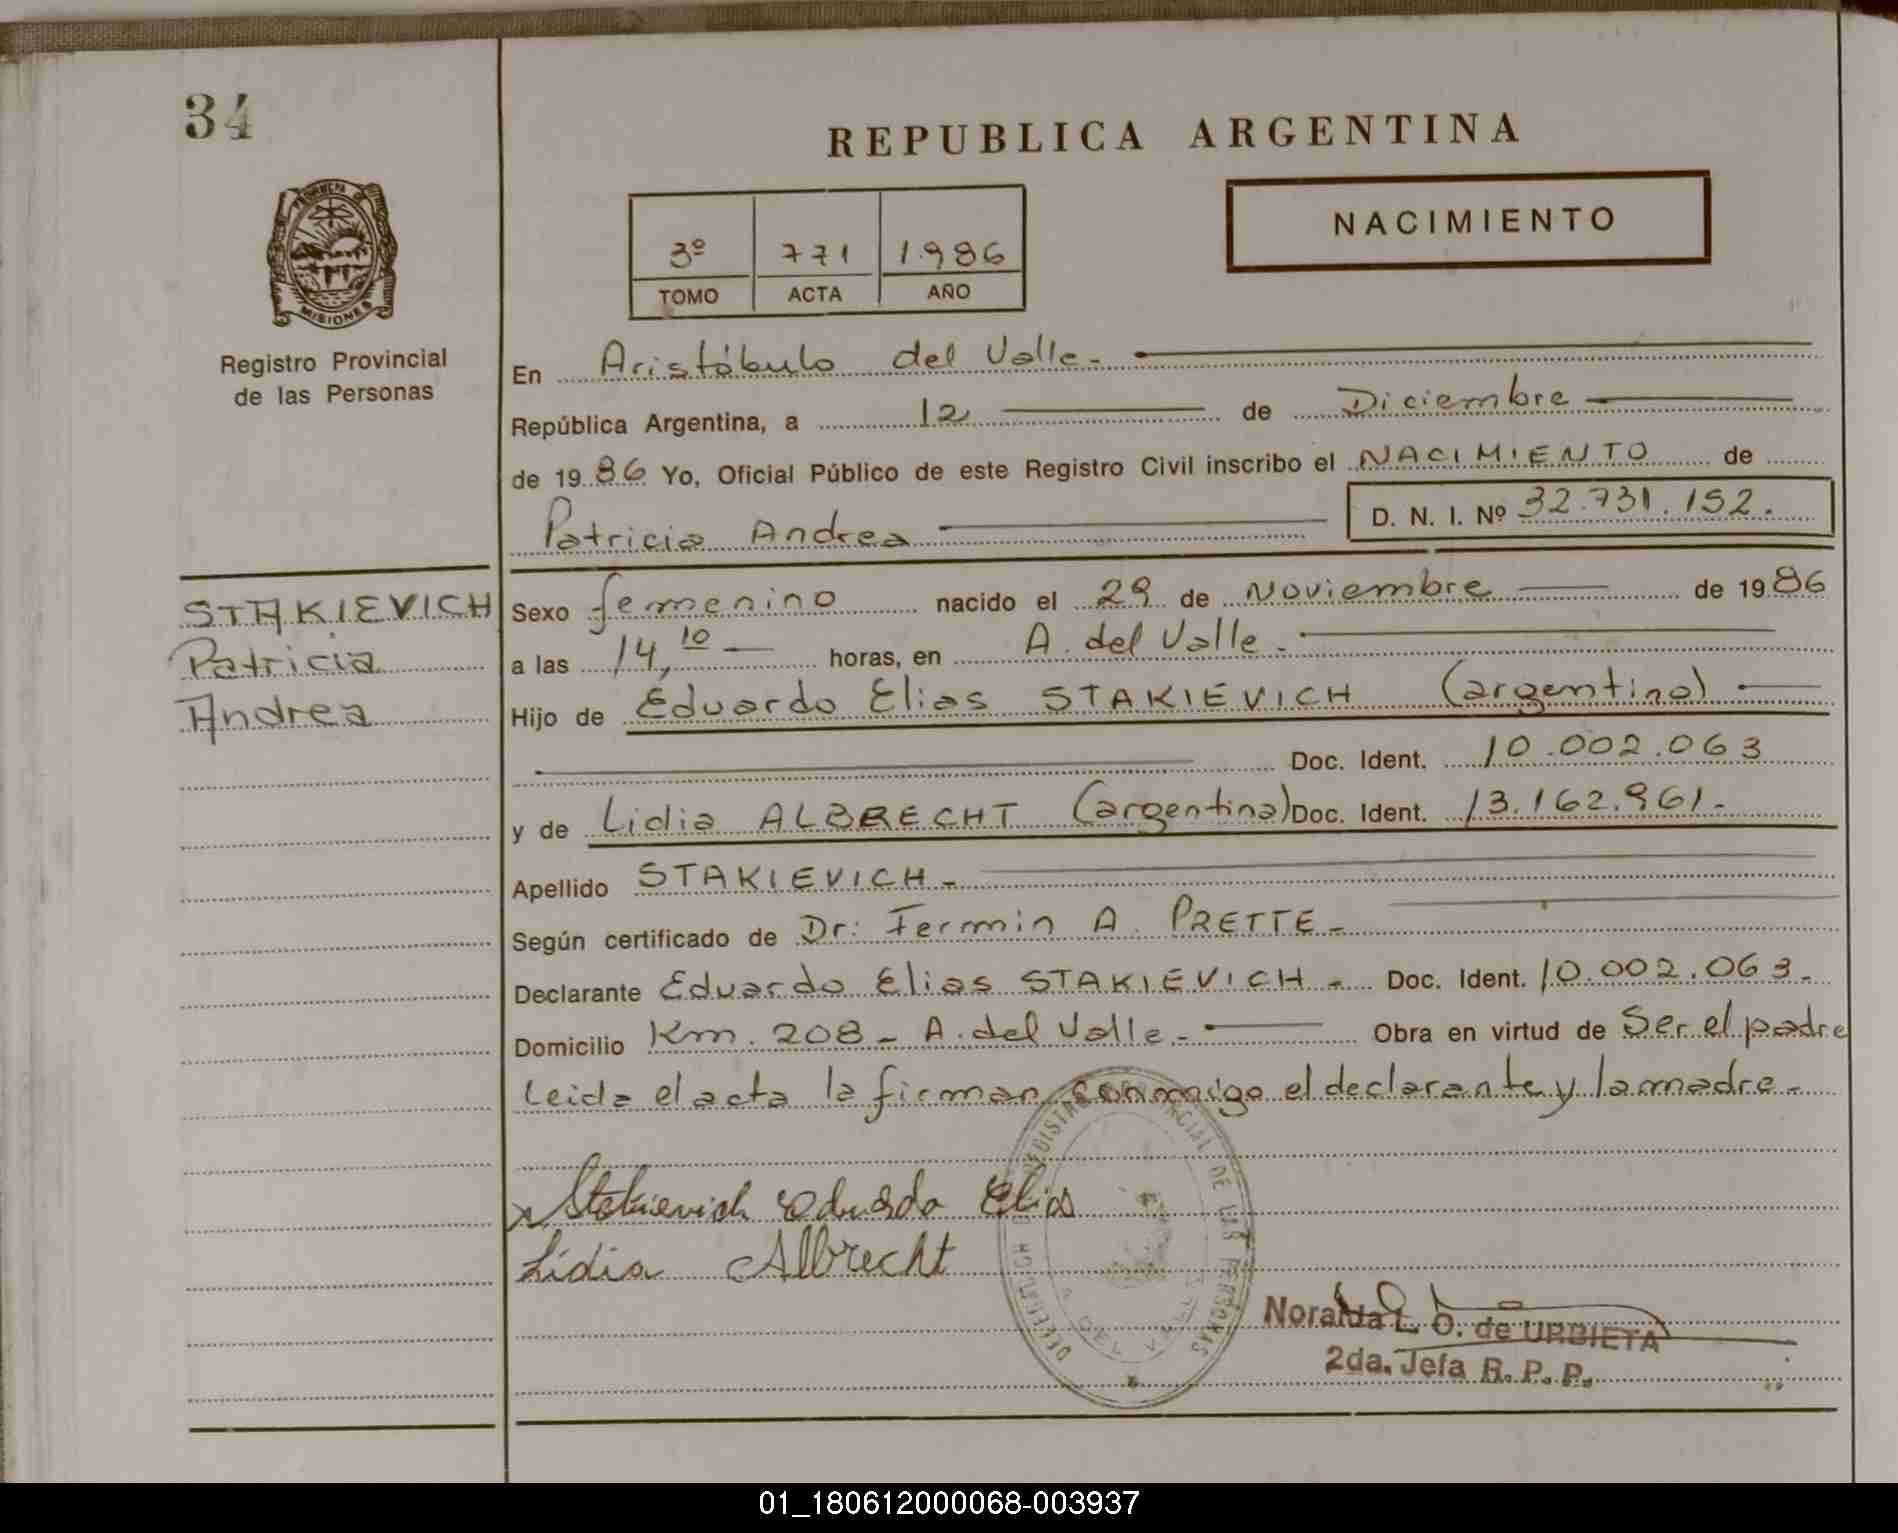 34
REPUBLICA ARGENTINA
PROVINCIA DE
MISIONES
Registro Provincial
de las Personas
3º 771 1.986
TOMO ACTA AÑO
NACIMIENTO
En Aristóbulo del Valle.-
República Argentina, a 12 de Diciembre
de 1986 Yo, Oficial Público de este Registro Civil inscribo el NACIMIENTO de
Patricia Andrea D. N. I. Nº 32.731.152.
STAKIEVICH
Patricia
Andrea
Sexo femenino nacido el 29 de Noviembre de 1986
a las 14,10 horas, en A. del Valle.-
Hijo de Eduardo Elias STAKIEVICH (argentino)
Doc. Ident. 10.002.063
y de Lidia ALBRECHT (argentina) Doc. Ident. 13.162.961.-
Apellido STAKIEVICH.-
Según certificado de Dr: Fermin A. PRETTE.-
Declarante Eduardo Elias STAKIEVICH.- Doc. Ident. 10.002.063.-
Domicilio Km. 208 - A. del Valle.- Obra en virtud de Ser el padre
Leida el acta la firman conmigo el declarante y la madre.-
x Stakievich Eduardo Elias
Lidia Albrecht
DE LAS PERSONAS
A. DEL VALLE
Noralda L. O. de URBIETA
2da. Jefa R. P. P.
01_180612000068-003937